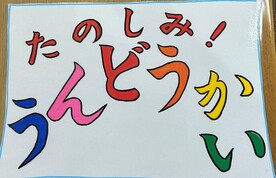 たのしみ!
うんどうかい